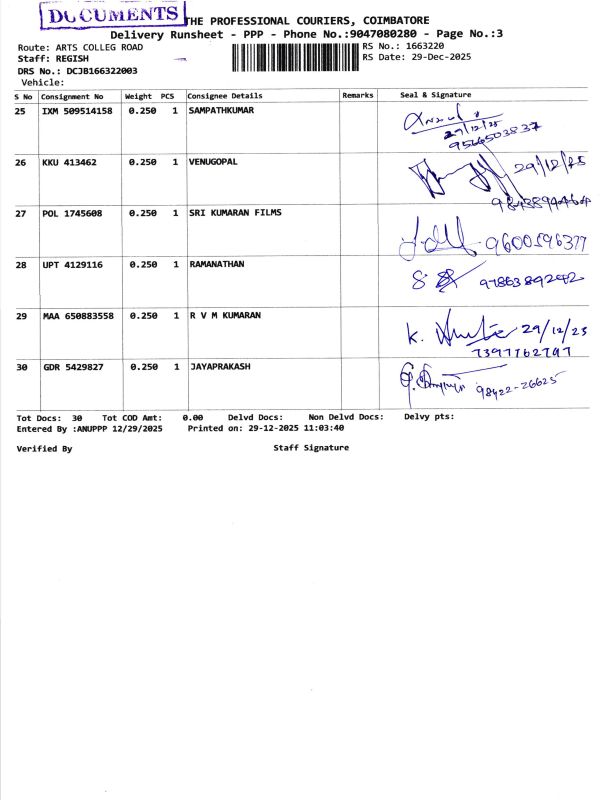 DOCUMENTS
THE PROFESSIONAL COURIERS, COIMBATORE
Delivery Runsheet - PPP - Phone No.:9047080280 - Page No.:3
Route: ARTS COLLEG ROAD
RS No.: 1663220
Staff: REGISH
RS Date: 29-Dec-2025
DRS No.: DCJB166322003
Vehicle:
S No Consignment No Weight PCS Consignee Details Remarks Seal & Signature
25 IXM 509514158 0.250 1 SAMPATHKUMAR
27/12/25
9566503837
26 KKU 413462 0.250 1 VENUGOPAL
29/12/25
27 POL 1745608 0.250 1 SRI KUMARAN FILMS
9600596377
28 UPT 4129116 0.250 1 RAMANATHAN
9786389242
29 MAA 650883558 0.250 1 R V M KUMARAN
K. 29/12/25
7397762797
30 GDR 5429827 0.250 1 JAYAPRAKASH
98422-26625
Tot Docs: 30 Tot COD Amt: 0.00 Delvd Docs: Non Delvd Docs: Delvy pts:
Entered By :ANUPPP 12/29/2025 Printed on: 29-12-2025 11:03:40
Verified By Staff Signature